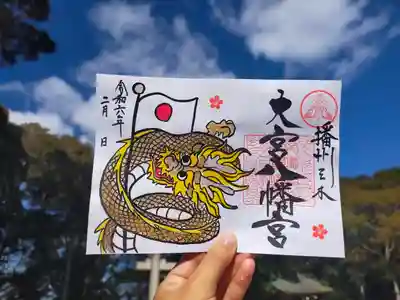 播州三木
大宮八幡宮
令和六年
二月 日